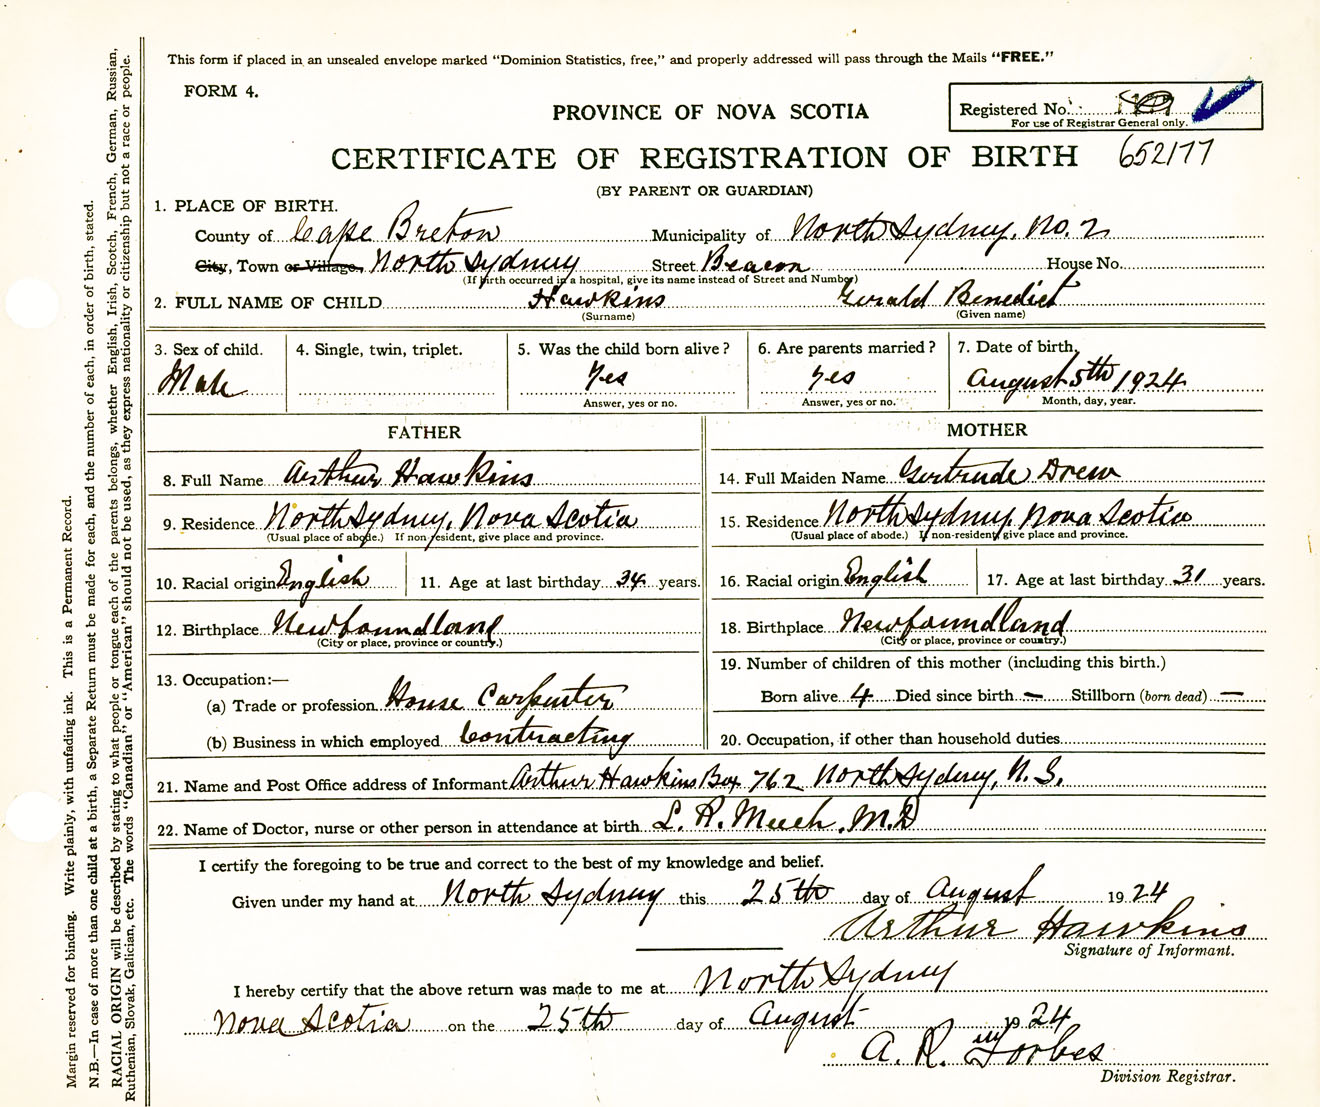 This form if placed in an unsealed envelope marked “Dominion Statistics, free,” and properly addressed will pass through the Mails “FREE.”
FORM 4.
PROVINCE OF NOVA SCOTIA
Registered No.
For use of Registrar General only.
CERTIFICATE OF REGISTRATION OF BIRTH 652177
(BY PARENT OR GUARDIAN)
1. PLACE OF BIRTH.
County of Cape Breton Municipality of North Sydney, No. 2
City, Town or Village. North Sydney Street Beacon House No.
(If birth occurred in a hospital, give its name instead of Street and Number)
2. FULL NAME OF CHILD Hawkins Gerald Benedict
(Surname) (Given name)
3. Sex of child. 4. Single, twin, triplet. 5. Was the child born alive? 6. Are parents married? 7. Date of birth.
Male Yes yes August 5th 1924
Answer, yes or no. Answer, yes or no. Month, day, year.
FATHER MOTHER
8. Full Name Arthur Hawkins 14. Full Maiden Name Gertrude Drew
9. Residence North Sydney, Nova Scotia 15. Residence North Sydney, Nova Scotia
(Usual place of abode.) If non-resident, give place and province. (Usual place of abode.) If non-resident, give place and province.
10. Racial origin English 11. Age at last birthday 34 years. 16. Racial origin English 17. Age at last birthday 31 years.
12. Birthplace Newfoundland 18. Birthplace Newfoundland
(City or place, province or country.) (City or place, province or country.)
13. Occupation:— 19. Number of children of this mother (including this birth.)
(a) Trade or profession House Carpenter Born alive 4 Died since birth — Stillborn (born dead) —
(b) Business in which employed Contracting 20. Occupation, if other than household duties
21. Name and Post Office address of Informant Arthur Hawkins Box 762 North Sydney, N. S.
22. Name of Doctor, nurse or other person in attendance at birth L. R. Meech, M.D
I certify the foregoing to be true and correct to the best of my knowledge and belief.
Given under my hand at North Sydney this 25th day of August 1924
Arthur Hawkins
Signature of Informant.
I hereby certify that the above return was made to me at North Sydney
Nova Scotia on the 25th day of August 1924
A. R. Forbes
Division Registrar.
Margin reserved for binding. Write plainly, with unfading ink. This is a Permanent Record.
N.B.—In case of more than one child at a birth, a Separate Return must be made for each, and the number of each, in order of birth, stated.
RACIAL ORIGIN will be described by stating to what people or tongue each of the parents belongs, whether English, Irish, Scotch, French, German, Russian,
Ruthenian, Slovak, Galician, etc. The words “Canadian” or “American” should not be used, as they express nationality or citizenship but not a race or people.